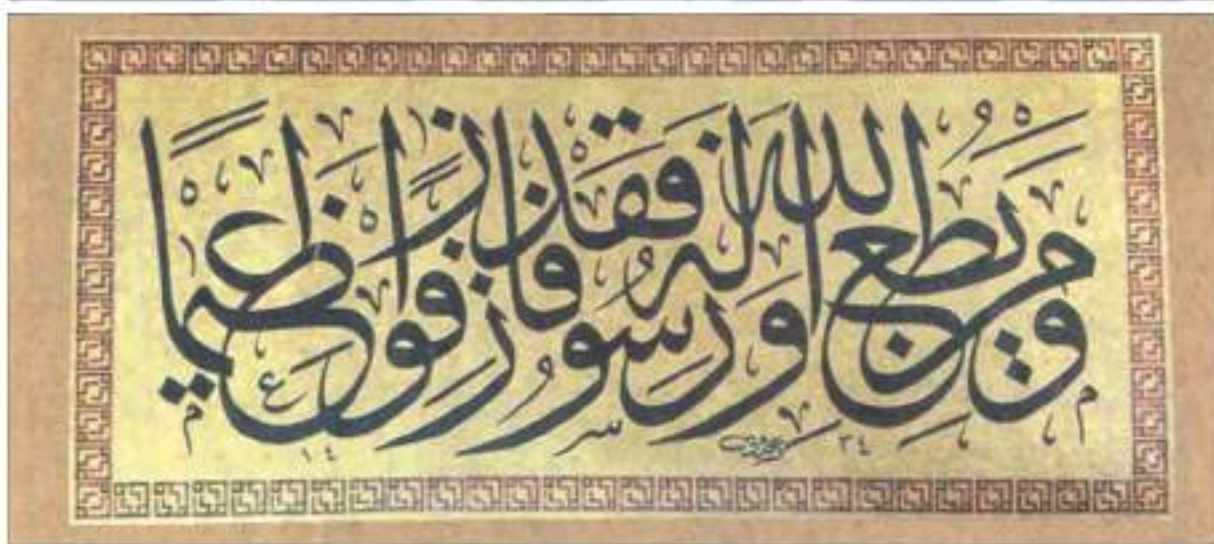 وَمَنْ يُطِعِ اللَّهَ وَرَسُولَهُ فَقَدْ فَازَ فَوْزًا عَظِيمًا
٣٤ ١٤